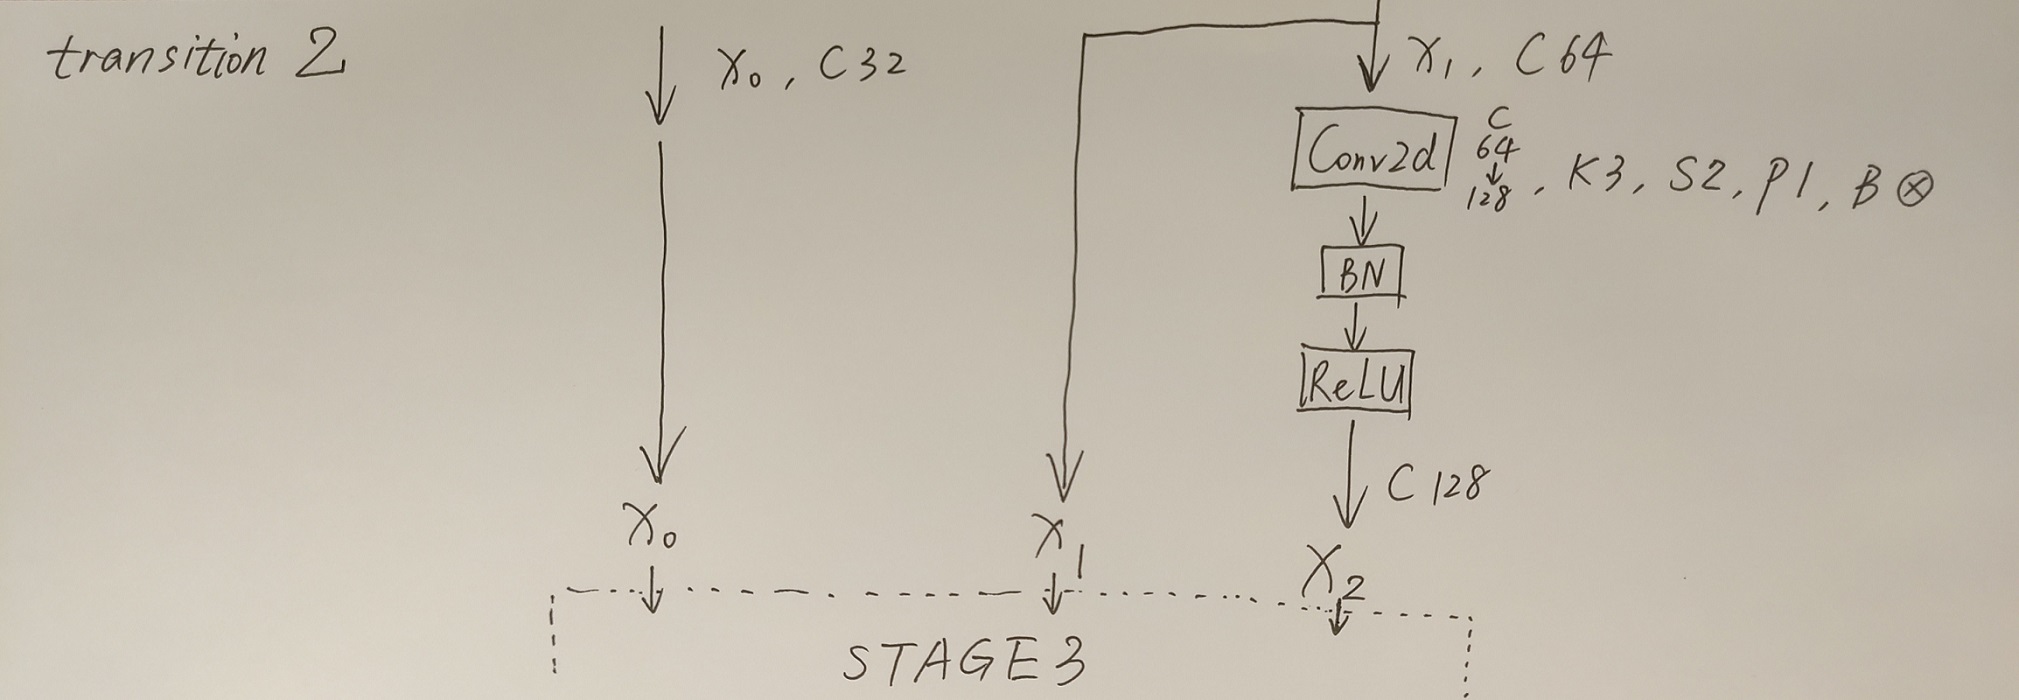 transition 2
X₀, C32
X₁, C64
Conv2d
C
64
↓
128, K3, S2, P1, B ⊗
BN
ReLU
C 128
X₀
X₁
X₂
STAGE3